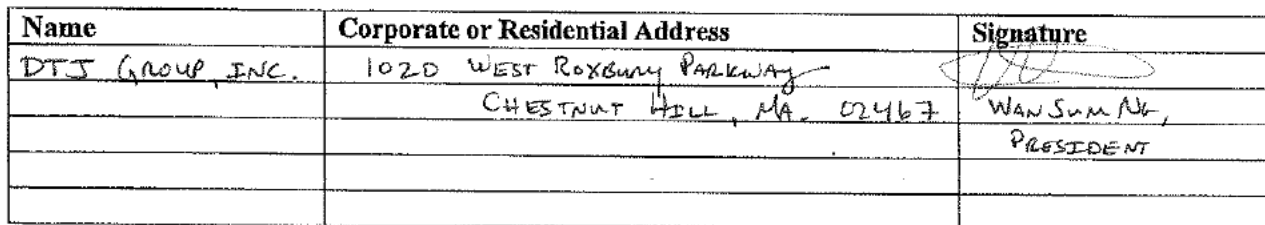 Name Corporate or Residential Address Signature
DTJ GROUP, INC. 1020 WEST ROXBURY PARKWAY
CHESTNUT HILL, MA. 02467 WAN SUM NG,
PRESIDENT